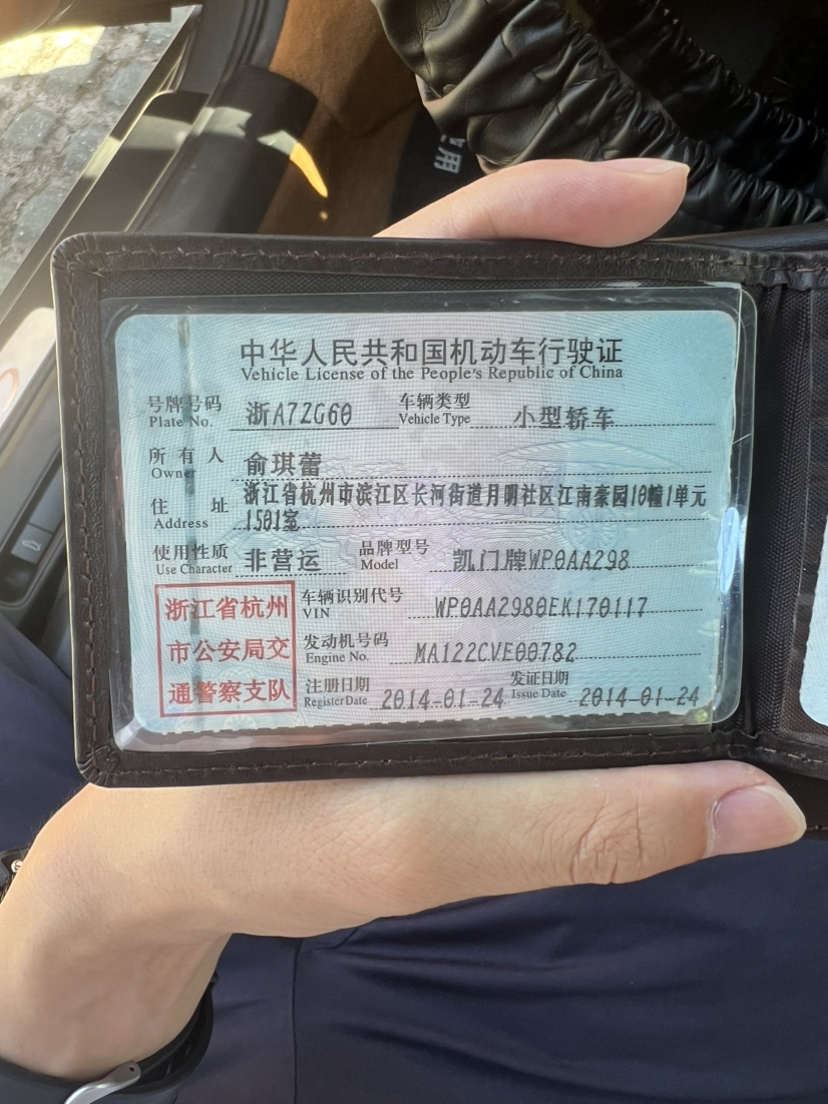 中华人民共和国机动车行驶证
Vehicle License of the People's Republic of China
号牌号码 浙A7ZG60 车辆类型 小型轿车
Plate No. Vehicle Type
所有人 俞琪蕾
Owner
住址 浙江省杭州市滨江区长河街道月明社区江南豪园10幢1单元
Address 1501室
使用性质 非营运 品牌型号 凯门牌WP0AA298
Use Character Model
浙江省杭州
市公安局交
通警察支队
车辆识别代号 WP0AA2980EK170117
VIN
发动机号码 MA122CVE00782
Engine No.
注册日期 2014-01-24 发证日期 2014-01-24
Register Date Issue Date
用